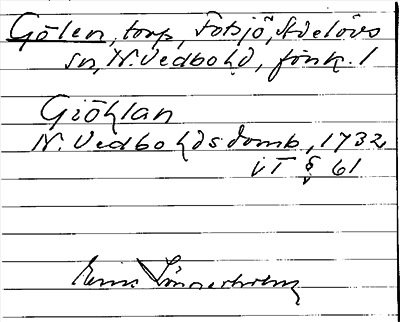 Gölen, torp, Fotsjö, Adelövs
sn, N. Vedbo hd, Jönk. l
Gröhlan
N. Vedbo hds domb, 1732,
vT § 61